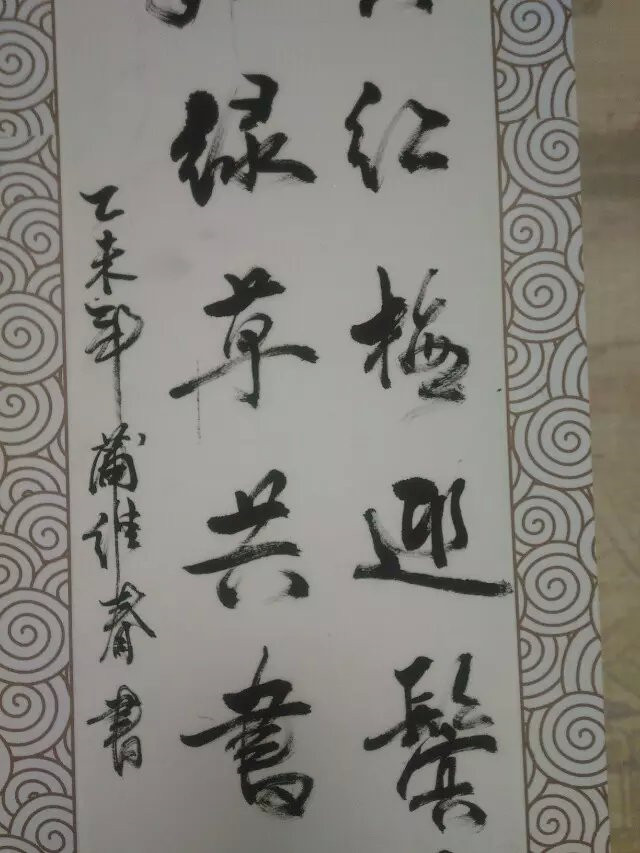 红梅迎鬓
绿草共书
乙未年蒲维春書